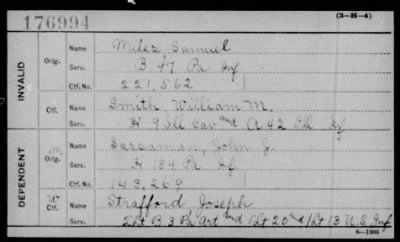 176994
(3-H-4)
INVALID
Orig.
Name Miles, Samuel
Serv. B. 97 Pa Inf
Ctf. No. 221,562
Ctf.
Name Smith, William M.
Serv. H 9 Ill Cav and A 42 Ill Inf
DEPENDENT
Orig.
Name Sassaman, John J.
Serv. H 184 Pa Inf
Ctf. No. 143,269
Ctf.
Name Strafford, Joseph
Serv. 2Bt B 3 Pa Art and 1Bt 13 U.S. Inf
6-1308